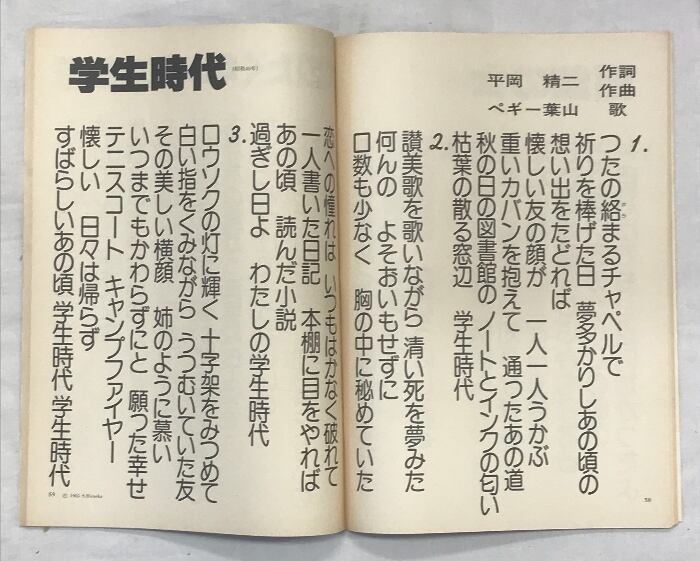 学生時代
平岡 精二 作詞
作曲
ペギー葉山 歌
1.
つたの絡まるチャペルで
祈りを捧げた日 夢多かりしあの頃の
想い出をたどれば
懐しい友の顔が 一人一人うかぶ
重いカバンを抱えて 通ったあの道
秋の日の図書館の ノートとインクの匂い
枯葉の散る窓辺 学生時代
2.
讃美歌を歌いながら 清い死を夢みた
何んの よそおいもせずに
口数も少なく 胸の中に秘めていた
恋への憧れは いつもはかなく破れて
一人書いた日記 本棚に目をやれば
あの頃 読んだ小説
過ぎし日よ わたしの学生時代
3.
ロウソクの灯に輝く 十字架をみつめて
白い指をくみながら うつむいていた友
その美しい横顔 姉のように慕い
いつまでもかわらずにと 願った幸せ
テニスコート キャンプファイヤー
懐しい 日々は帰らず
すばらしいあの頃 学生時代 学生時代
58
59